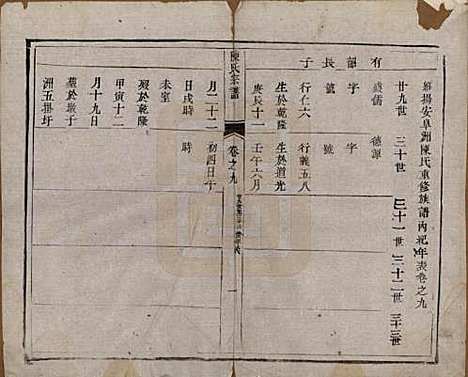 維揚安阜洲陳氏重修族譜內祀年表卷之九
廿九世 三十世 三十一世 三十二世 三十三世
有 德譚
韶字 字
長號 號
子 行仁六 行義五八
生於乾隆 生於道光
庚辰十一 壬午六月
月二十二 初四日午
日戌時 時
未室
歿於乾隆
甲寅十二
月十九日
墓於廟子
洲五掛圩
陳氏宗譜
卷之九
一